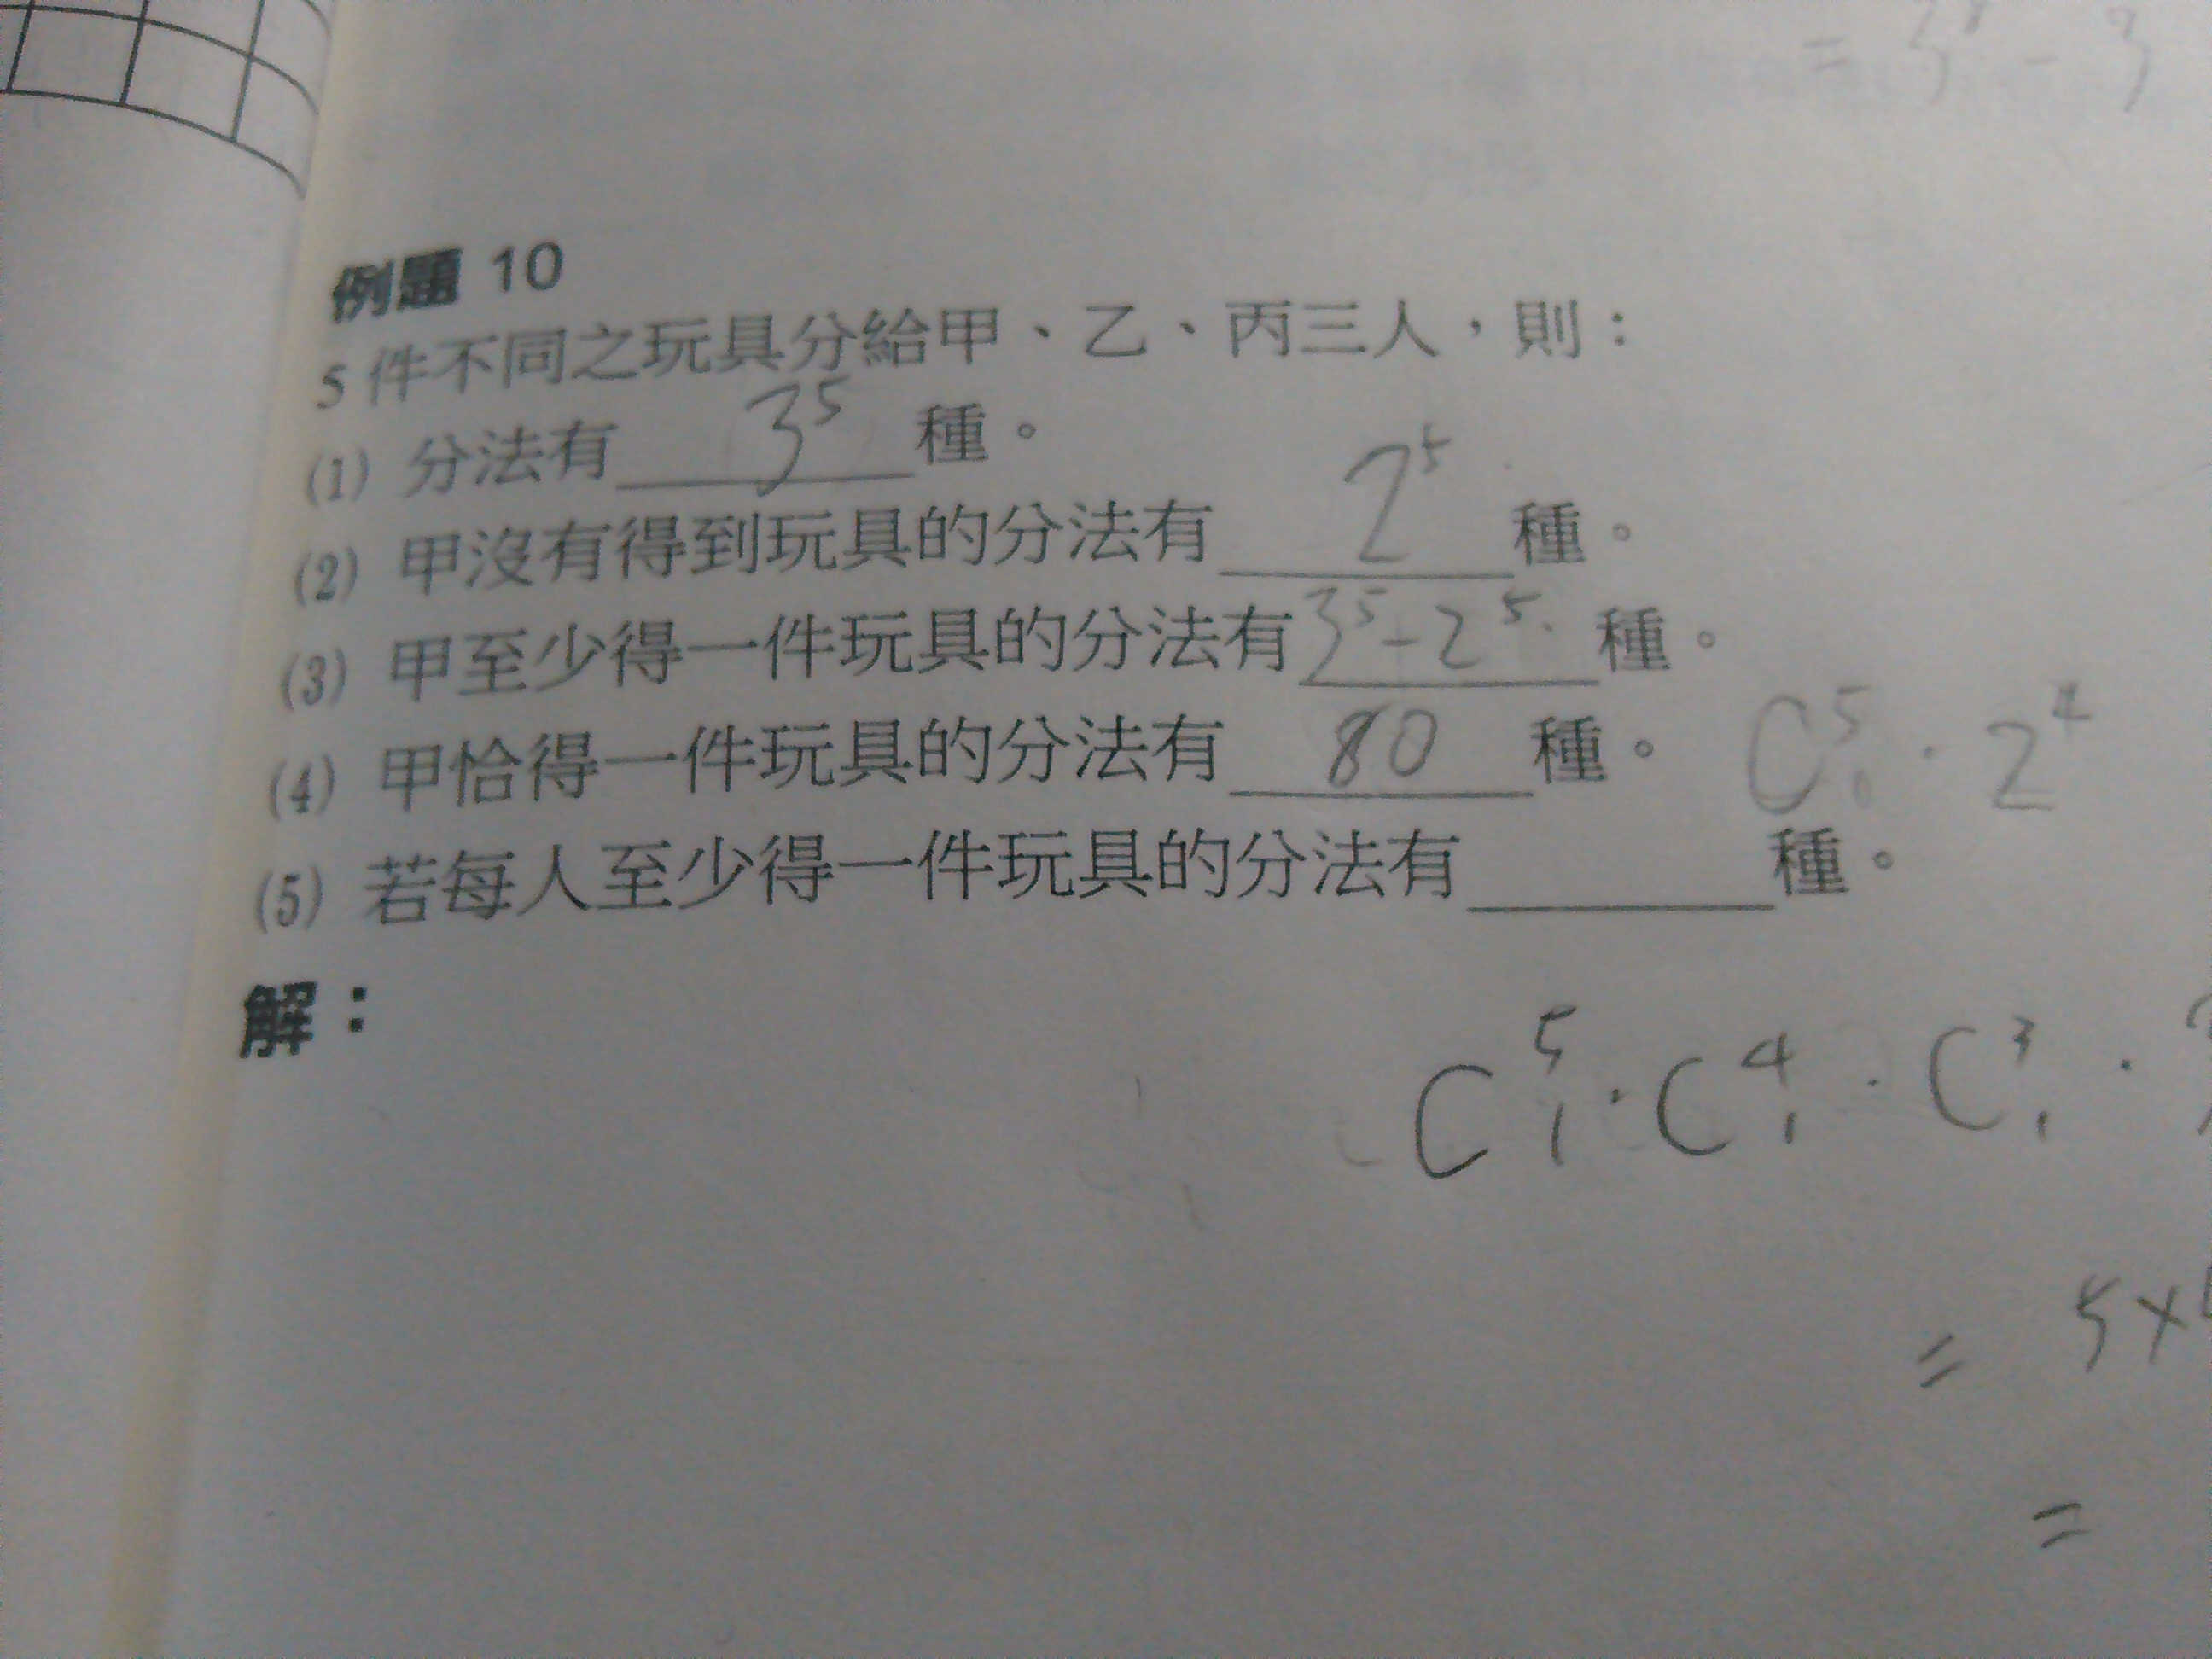 = 3⁸ - 3
例題 10
5 件不同之玩具分給甲、乙、丙三人，則：
(1) 分法有 3⁵ 種。
(2) 甲沒有得到玩具的分法有 2⁵ 種。
(3) 甲至少得一件玩具的分法有 3⁵-2⁵ 種。
(4) 甲恰得一件玩具的分法有 80 種。 C⁵₁ · 2⁴
(5) 若每人至少得一件玩具的分法有______種。
解：
C⁵₁ · C⁴₁ · C³₁ ·
= 5×
=